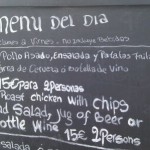 Menu Del Dia
a Viernes - No Incluye Bebidas
Pollo Asado, Ensalada y Patatas Fritas
Jarra de Cerveza o Botella de Vino
15€ para 2 Personas
Roast chicken with chips
and Salad, jug of beer or
Bottle Wine 15€ 2 Persons